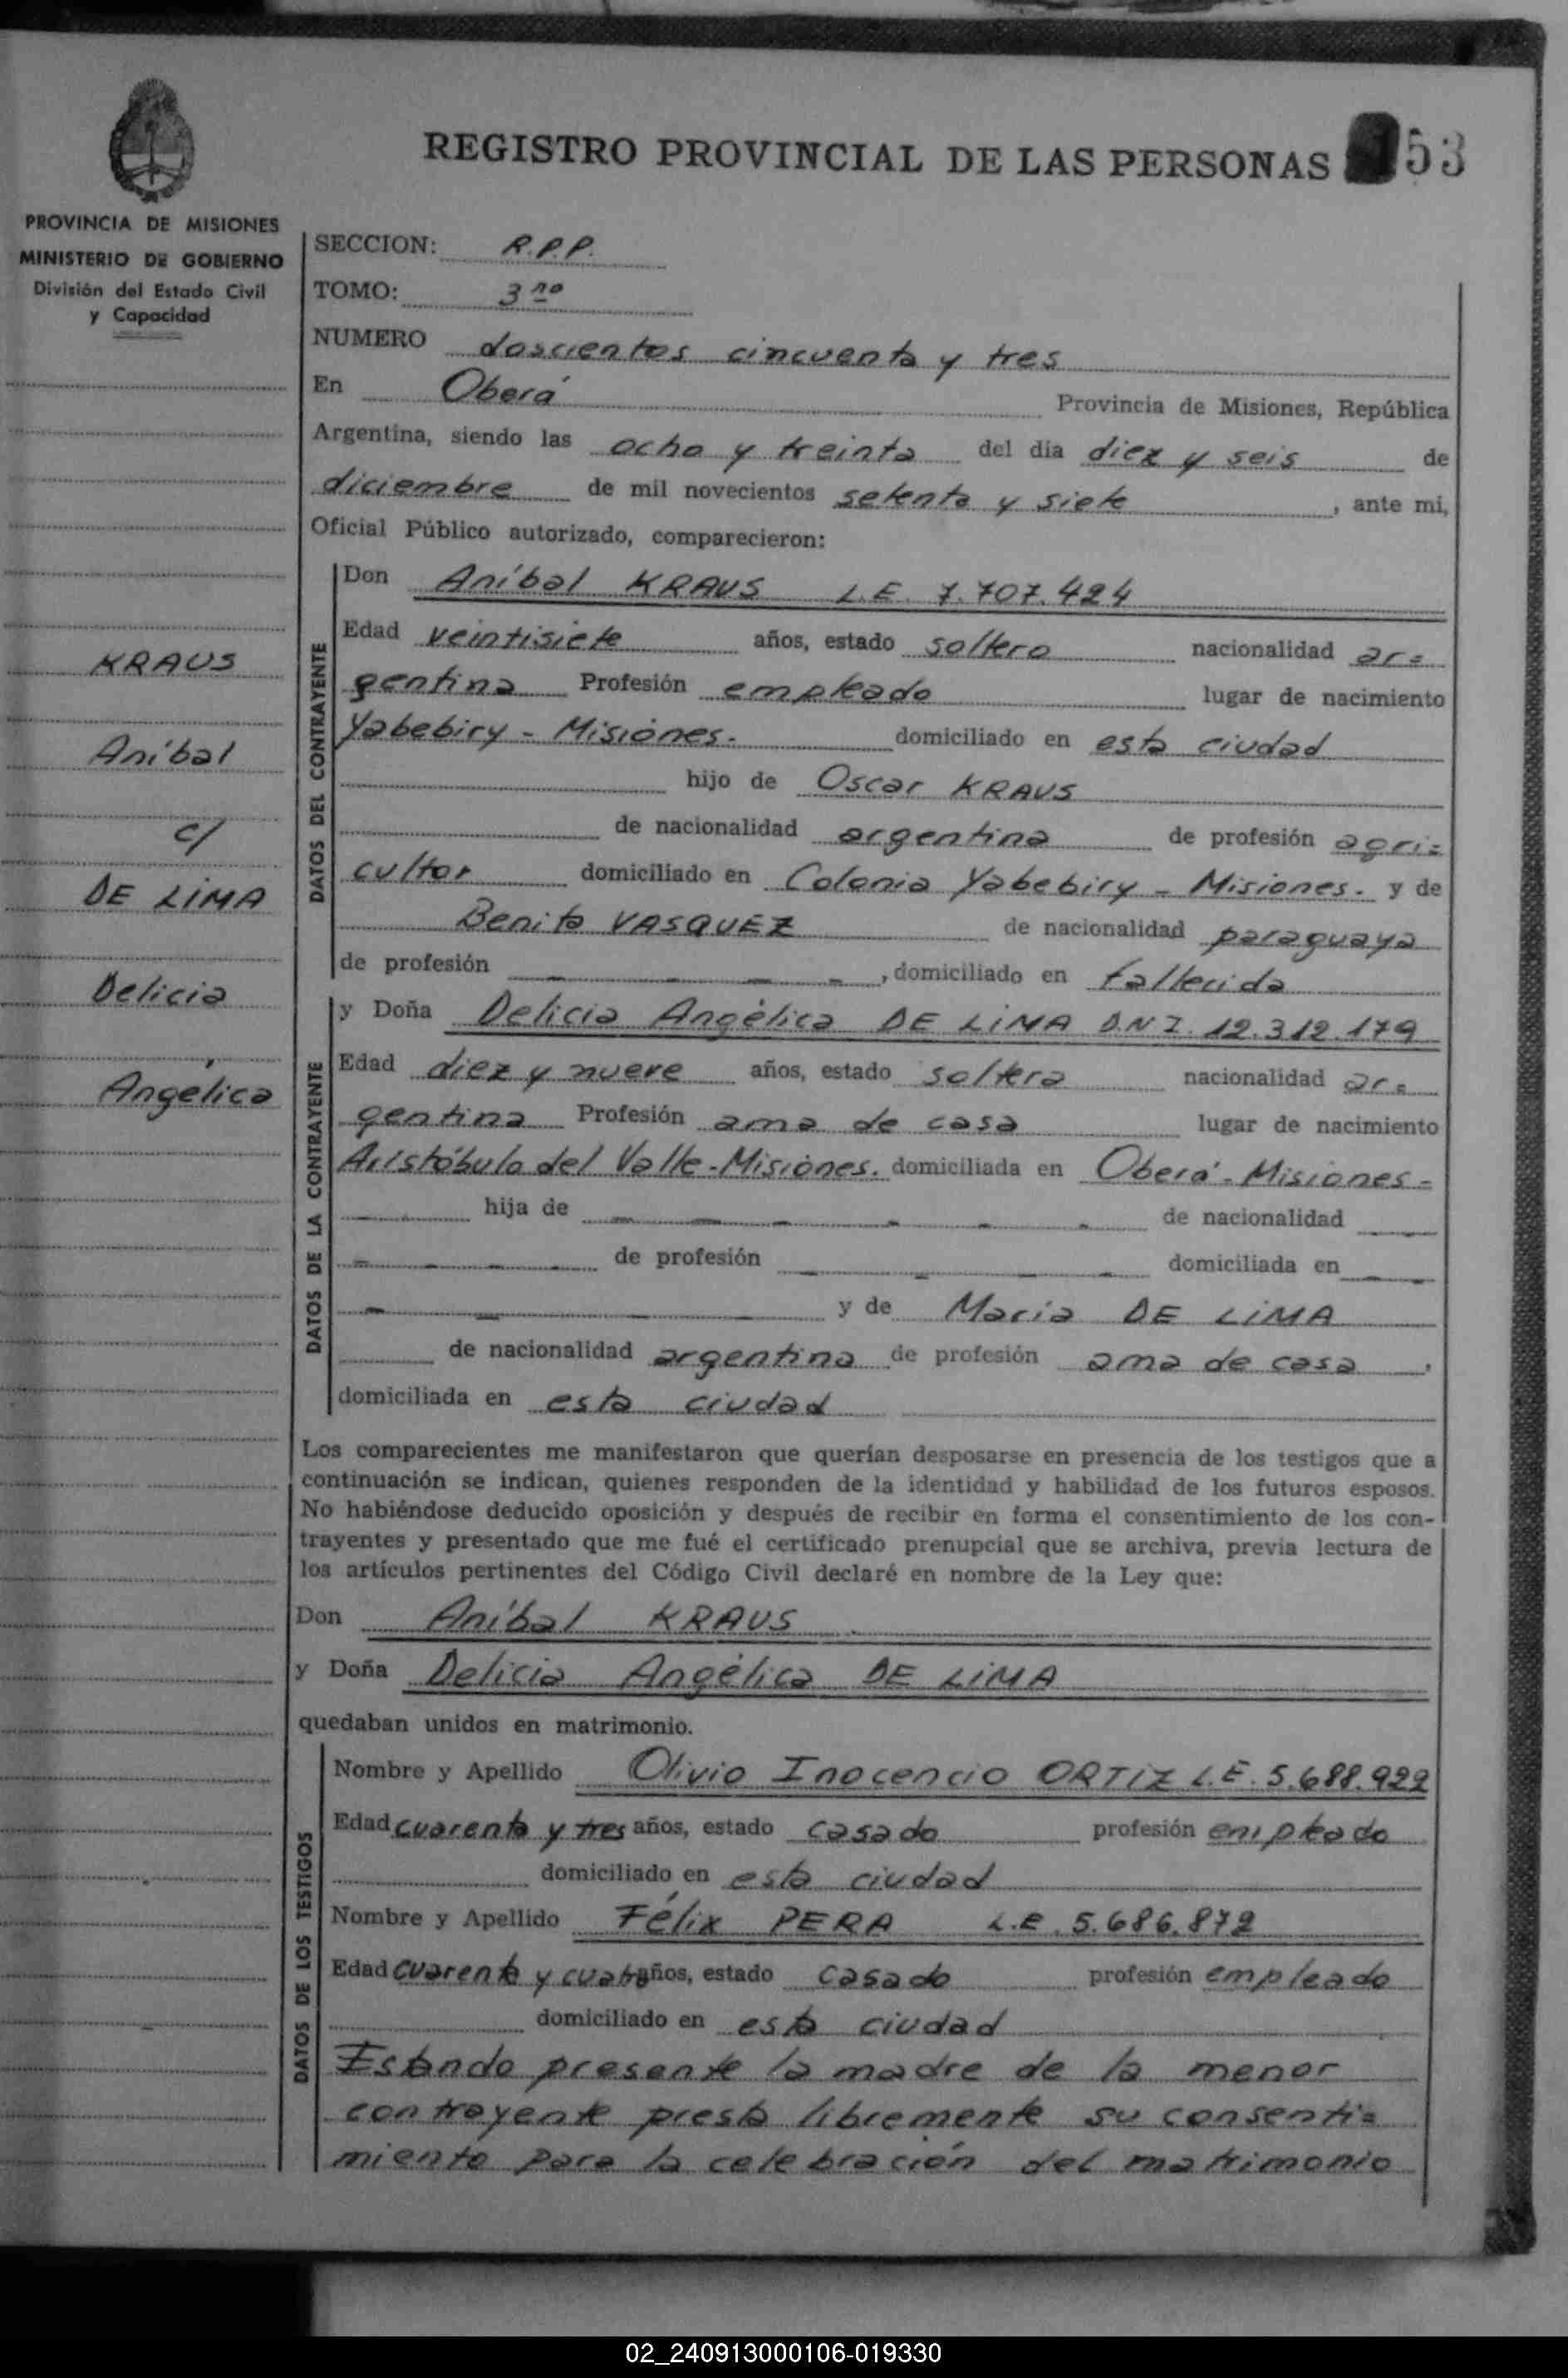 REGISTRO PROVINCIAL DE LAS PERSONAS 53
PROVINCIA DE MISIONES
MINISTERIO DE GOBIERNO
División del Estado Civil
y Capacidad
KRAUS
Aníbal
c/
DE LIMA
Delicia
Angélica
SECCION: R.P.P.
TOMO: 3ro
NUMERO doscientos cincuenta y tres
En Oberá Provincia de Misiones, República
Argentina, siendo las ocho y treinta del dia diez y seis de
diciembre de mil novecientos setenta y siete, ante mi,
Oficial Público autorizado, comparecieron:
DATOS DEL CONTRAYENTE
Don Aníbal KRAUS L.E. 7.707.424
Edad veintisiete años, estado soltero nacionalidad ar=
gentina Profesión empleado lugar de nacimiento
Yabebiry - Misiones. domiciliado en esta ciudad
hijo de Oscar KRAUS
de nacionalidad argentina de profesión agri=
cultor domiciliado en Colonia Yabebiry - Misiones. y de
Benita VASQUEZ de nacionalidad paraguaya
de profesión — — — —, domiciliado en fallecida
DATOS DE LA CONTRAYENTE
y Doña Delicia Angélica DE LIMA D.N.I. 12.312.179
Edad diez y nueve años, estado soltera nacionalidad ar=
gentina Profesión ama de casa lugar de nacimiento
Aristóbulo del Valle-Misiones. domiciliada en Oberá - Misiones-
hija de — — — — — — de nacionalidad — —
— — — — de profesión — — — domiciliada en — —
— — — — y de Maria DE LIMA
de nacionalidad argentina de profesión ama de casa,
domiciliada en esta ciudad
Los comparecientes me manifestaron que querían desposarse en presencia de los testigos que a
continuación se indican, quienes responden de la identidad y habilidad de los futuros esposos.
No habiéndose deducido oposición y después de recibir en forma el consentimiento de los con-
trayentes y presentado que me fué el certificado prenupcial que se archiva, previa lectura de
los artículos pertinentes del Código Civil declaré en nombre de la Ley que:
Don Aníbal KRAUS
y Doña Delicia Angélica DE LIMA
quedaban unidos en matrimonio.
DATOS DE LOS TESTIGOS
Nombre y Apellido Olivio Inocencio ORTIZ L.E. 5.688.922
Edad cuarenta y tres años, estado casado profesión empleado
domiciliado en esta ciudad
Nombre y Apellido Félix PERA L.E. 5.686.872
Edad cuarenta y cuatro años, estado casado profesión empleado
domiciliado en esta ciudad
Estando presente la madre de la menor
contrayente presta libremente su consenti=
miento para la celebración del matrimonio
02_240913000106-019330